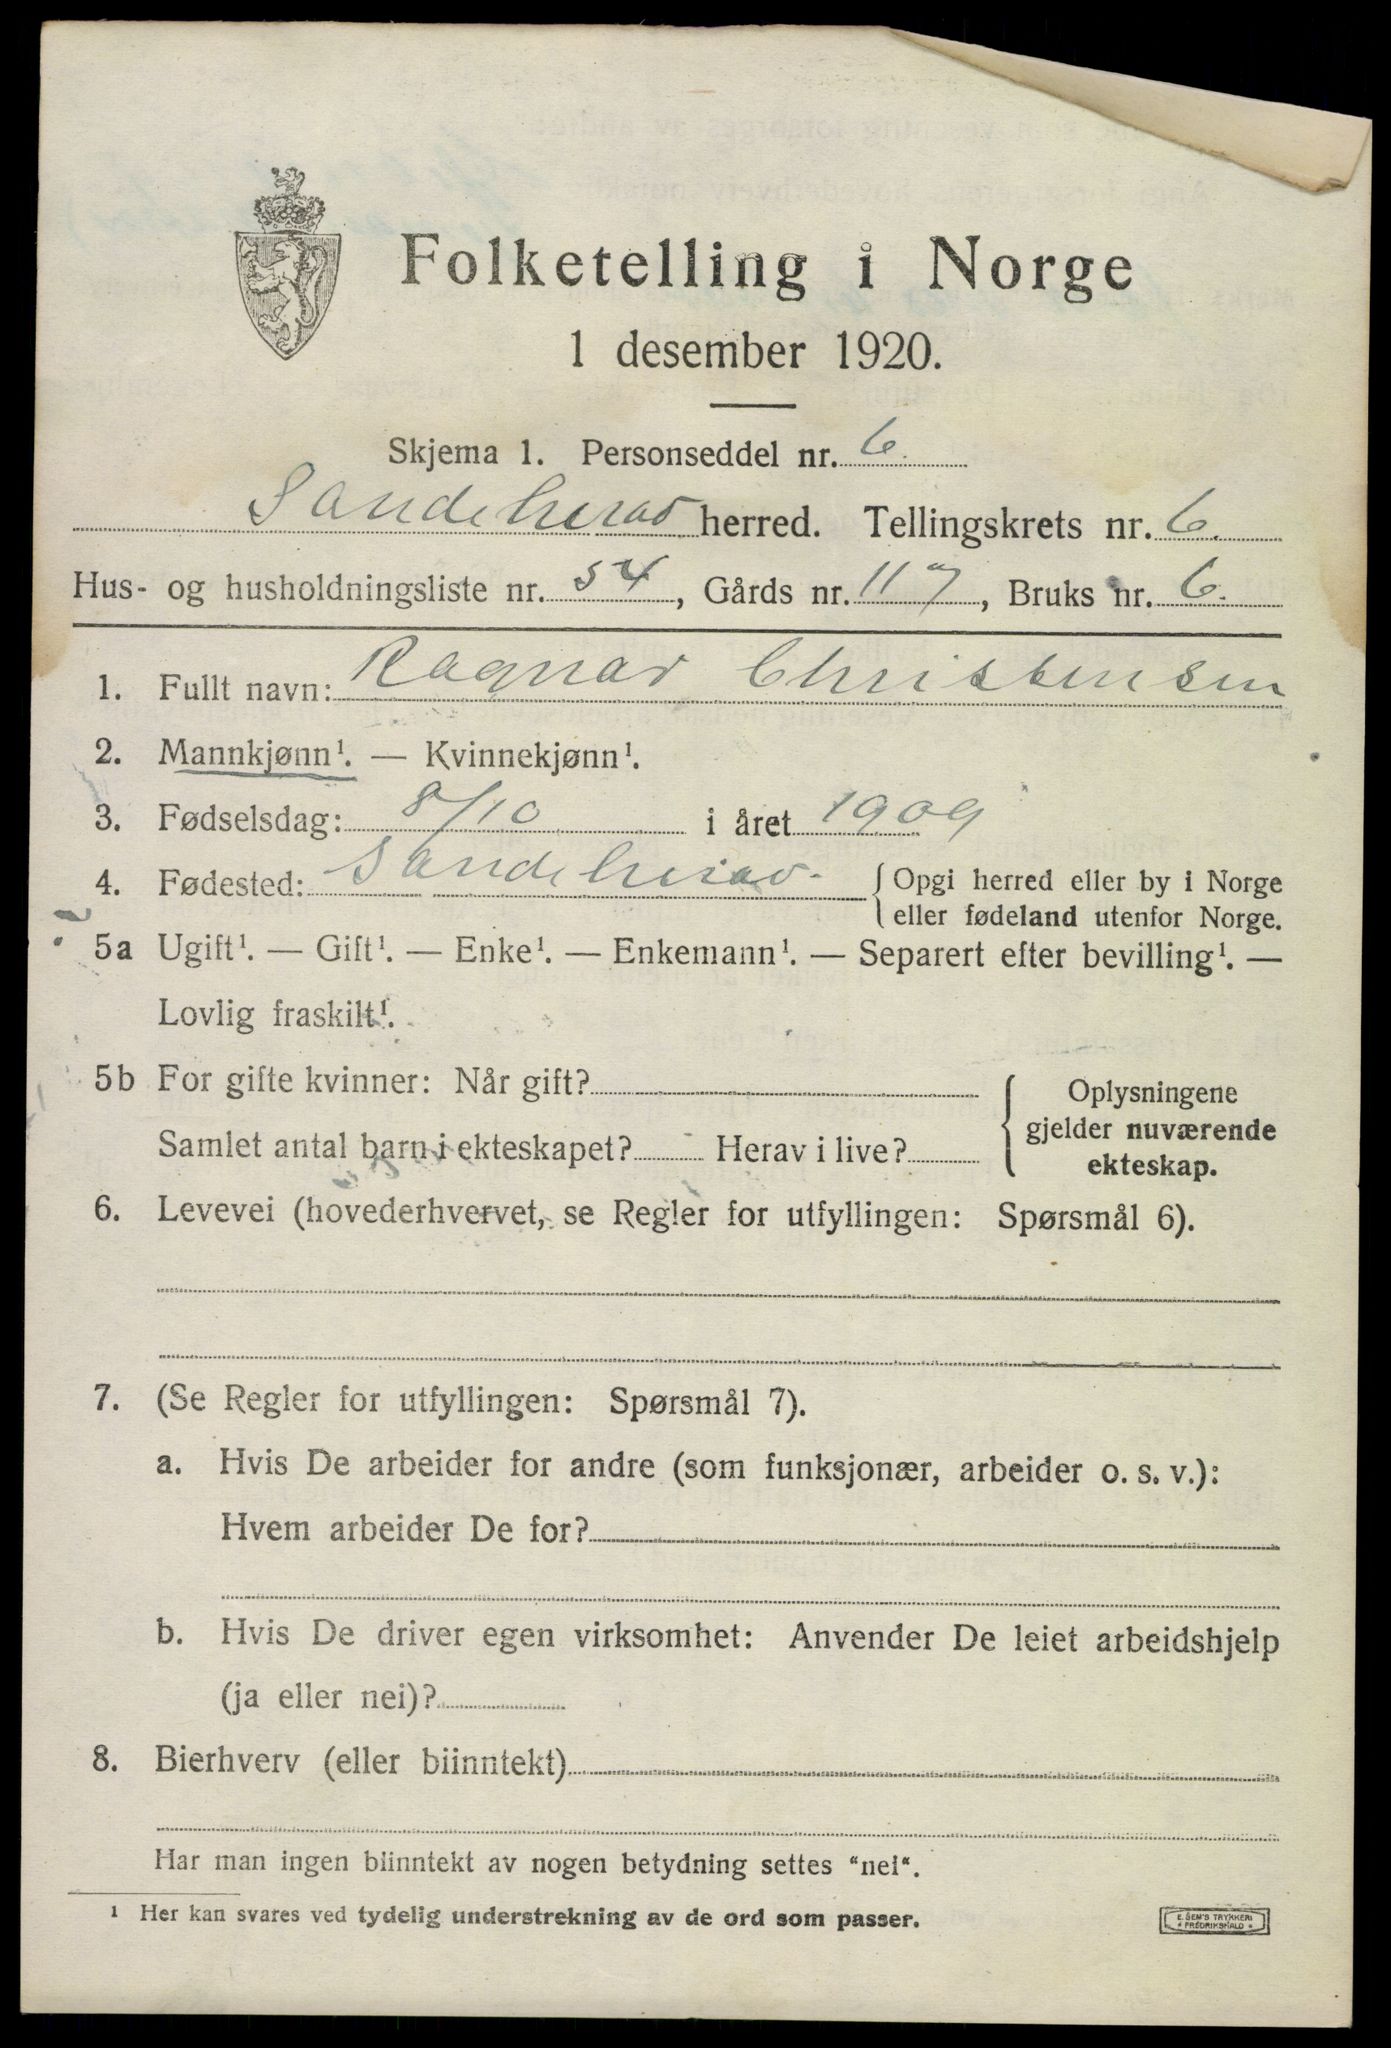 Folketelling i Norge
1 desember 1920.
Skjema 1. Personseddel nr. 6.
Sandeherad herred. Tellingskrets nr. 6.
Hus- og husholdningsliste nr. 54, Gårds nr. 117, Bruks nr. 6.
1. Fullt navn: Ragnar Christensen
2. Mannkjønn¹. — Kvinnekjønn¹.
3. Fødselsdag: 8/10 i året 1909
4. Fødested: Sandeherad. {Opgi herred eller by i Norge
eller fødeland utenfor Norge.
5a Ugift¹. — Gift¹. — Enke¹. — Enkemann¹. — Separert efter bevilling¹. —
Lovlig fraskilt¹.
5b For gifte kvinner: Når gift?
Samlet antal barn i ekteskapet? Herav i live?
Oplysningene
gjelder nuværende
ekteskap.
6. Levevei (hovederhvervet, se Regler for utfyllingen: Spørsmål 6).
7. (Se Regler for utfyllingen: Spørsmål 7).
a. Hvis De arbeider for andre (som funksjonær, arbeider o. s. v.):
Hvem arbeider De for?
b. Hvis De driver egen virksomhet: Anvender De leiet arbeidshjelp
(ja eller nei)?
8. Bierhverv (eller biinntekt)
Har man ingen biinntekt av nogen betydning settes "nei".
¹ Her kan svares ved tydelig understrekning av de ord som passer.
E. SEM'S TRYKKERI
* FREDRIKSHALD *